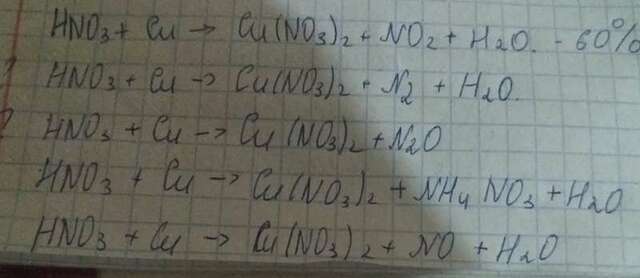 HNO3 + Cu → Cu(NO3)2 + NO2 + H2O. - 60%
? HNO3 + Cu → Cu(NO3)2 + N2 + H2O.
? HNO3 + Cu → Cu(NO3)2 + N2O
HNO3 + Cu → Cu(NO3)2 + NH4NO3 + H2O
HNO3 + Cu → Cu(NO3)2 + NO + H2O